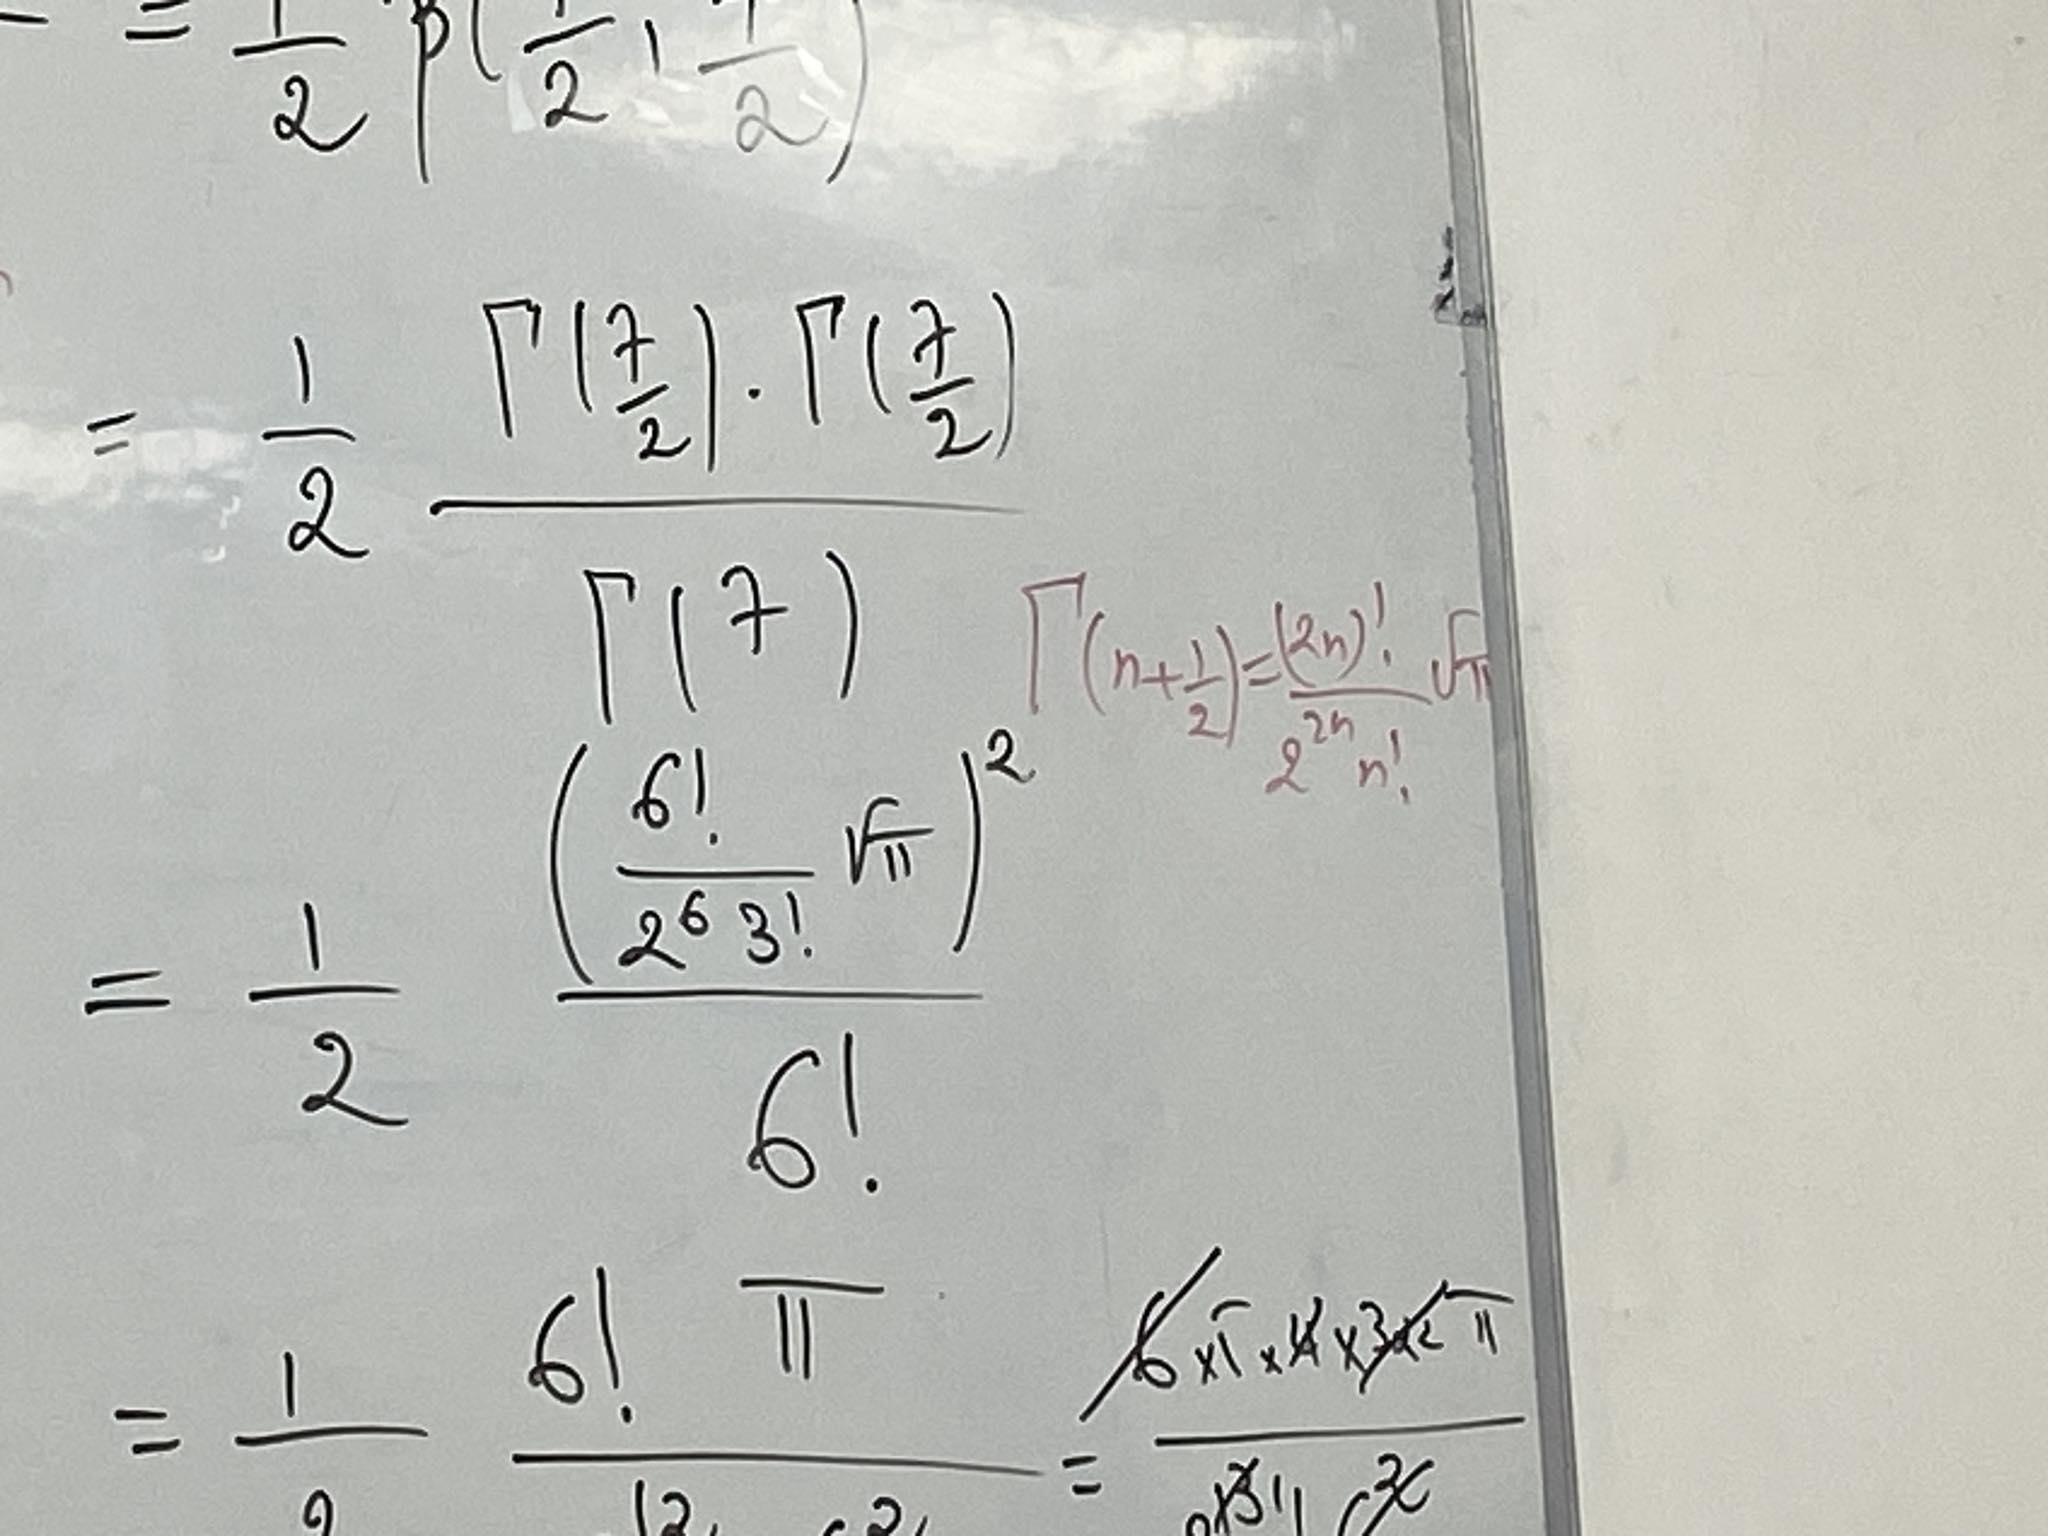 = 1/2 β(7/2, 7/2)
= 1/2 Γ(7/2) · Γ(7/2) / Γ(7)
Γ(n+1/2) = (2n)! / 2^{2n} n! √π
= 1/2 (6! / 2^6 3! √π)^2 / 6!
= 1/2 6! π / = 6 × 5 × 4 × 3 × 2 π /